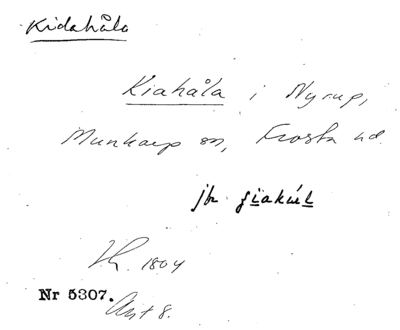 Kidahåla
Kiahåla i Nyrup,
Munkarp sn, Frosta hd.
jfr
1804
Nr 5307.
Avt 8.